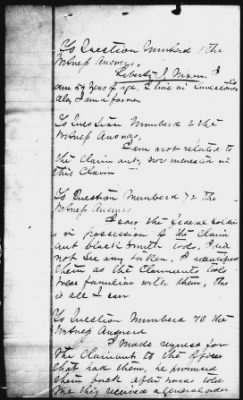 To Question Numberd 1 the
Witness Answers,
am 54 Years of age, I live in
also, I am a farmer
To Question Numberd 2 the
Witness Answers,
I am not related to
the Claimant, nor interested in
this Claim
To Question Numberd 72 the
Witness Answers
I saw the federal soldiers
in possession of the Claim
ant black Smith tools, I did
not see any taken, I
them as the Claimants tools
was familiar with them, this
is all I saw
To Question Numberd 40 the
Witness Answered
I made request for
the Claimant to the officers
that had them, he promised
them back afterwards told
me they received a General order